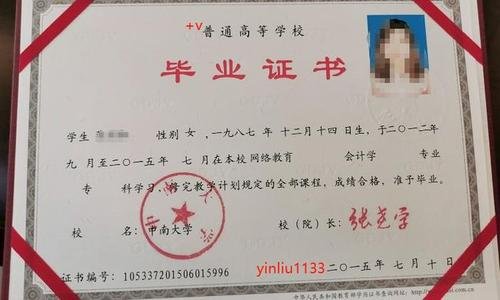 +v
普通高等学校
毕业证书
学生 性别 女,一九八七年 十二月十四日生,于二〇一二年
九 月至二〇一五年 七月在本校 网络教育 会计学 专业
专 科学习,修完教学计划规定的全部课程,成绩合格,准予毕业。
校 名: 中南大学 校(院)长: 张尧学
证书编号: 105337201506015996 yinliu1133 二〇一五年 七 月 十 日
中华人民共和国教育部学历证书查询网址: